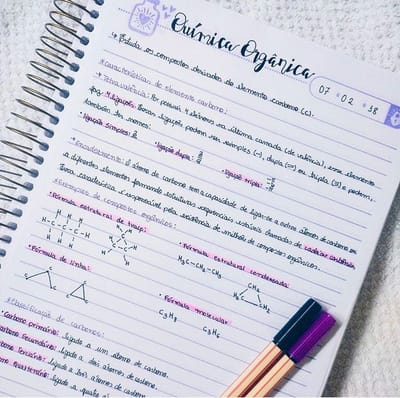 Química Orgânica
07 • 02 • 18
↳ Estuda os compostos derivados do elemento carbono (C).
*Características do elemento carbono:
• Tetravalência: Por possuir 4 elétrons na última camada (de valência), esse elemento
faz 4 ligações. Essas ligações podem ser simples (-), dupla (=) ou tripla (≡) e podem
também ser mistas:
• Ligação simples:
• Ligação dupla:
• Ligação tripla:
• Encadeamento: O átomo de carbono tem a capacidade de ligar-se a outros átomos de carbono ou
a diferentes elementos formando estruturas, estáveis chamadas de cadeias carbônicas.
Essa característica é responsável pela existência de milhões de compostos orgânicos.
*Exemplos de compostos orgânicos:
• Fórmula estrutural de traço:
• Fórmula estrutural condensada:
H₃C-CH₂-CH₃
CH₂
H₂C-CH₂
• Fórmula de linhas:
• Fórmula molecular:
C₃H₈
C₃H₆
*Classificação de carbonos:
• Carbono primário: ligado a um átomo de carbono.
Carbono secundário: ligado a dois átomos de carbono.
Carbono terciário: ligado a três átomos de carbono.
Carbono quaternário: ligado a quatro